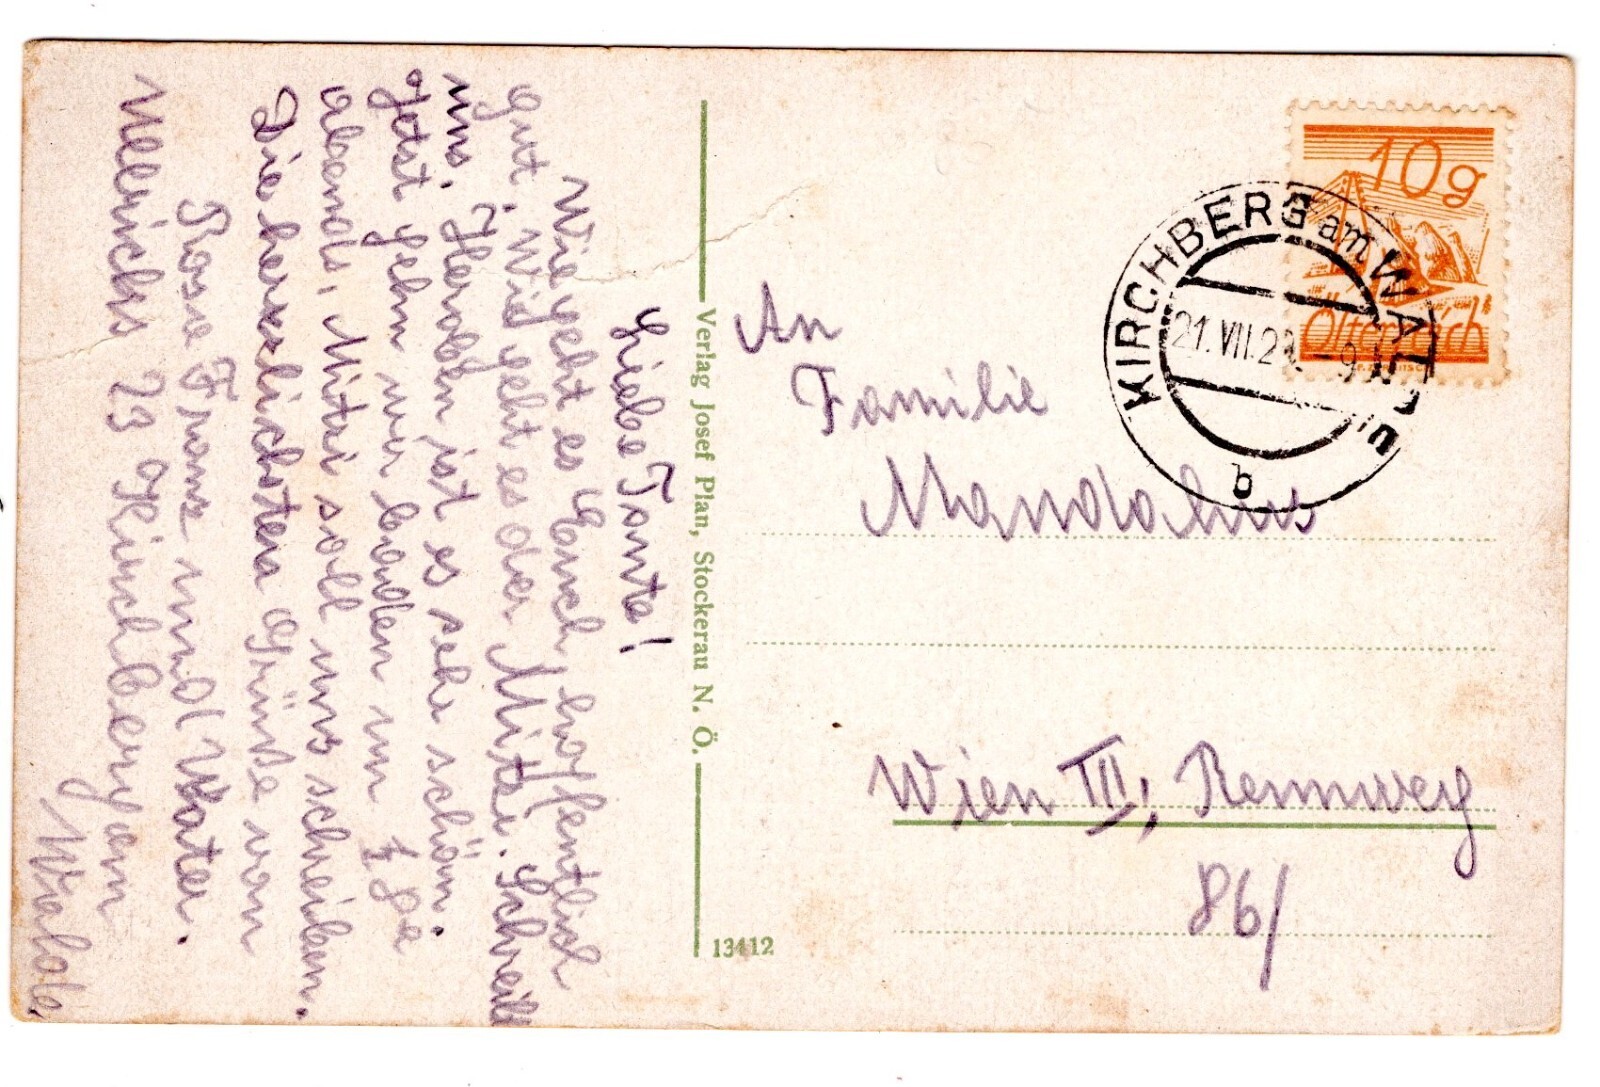 Liebe Tante!
Wie geht es Euch hoffentlich
gut, wie geht es der Mitzi. Schreibt
uns. Heroben ist es sehr schön.
Jetzt gehn wir baden um ½ 8
abends, Mitzi soll uns schreiben.
Die herzlichsten Grüße von
Rosse Franz und Vater.
Ullrichs 23 Kirchberg am
Walde
Verlag Josef Plan, Stockerau N. Ö.
13412
10g
Österreich
KIRCHBERG am WALDE
21. VII. 2
b
An
Familie
Wien III, Rennweg
86/